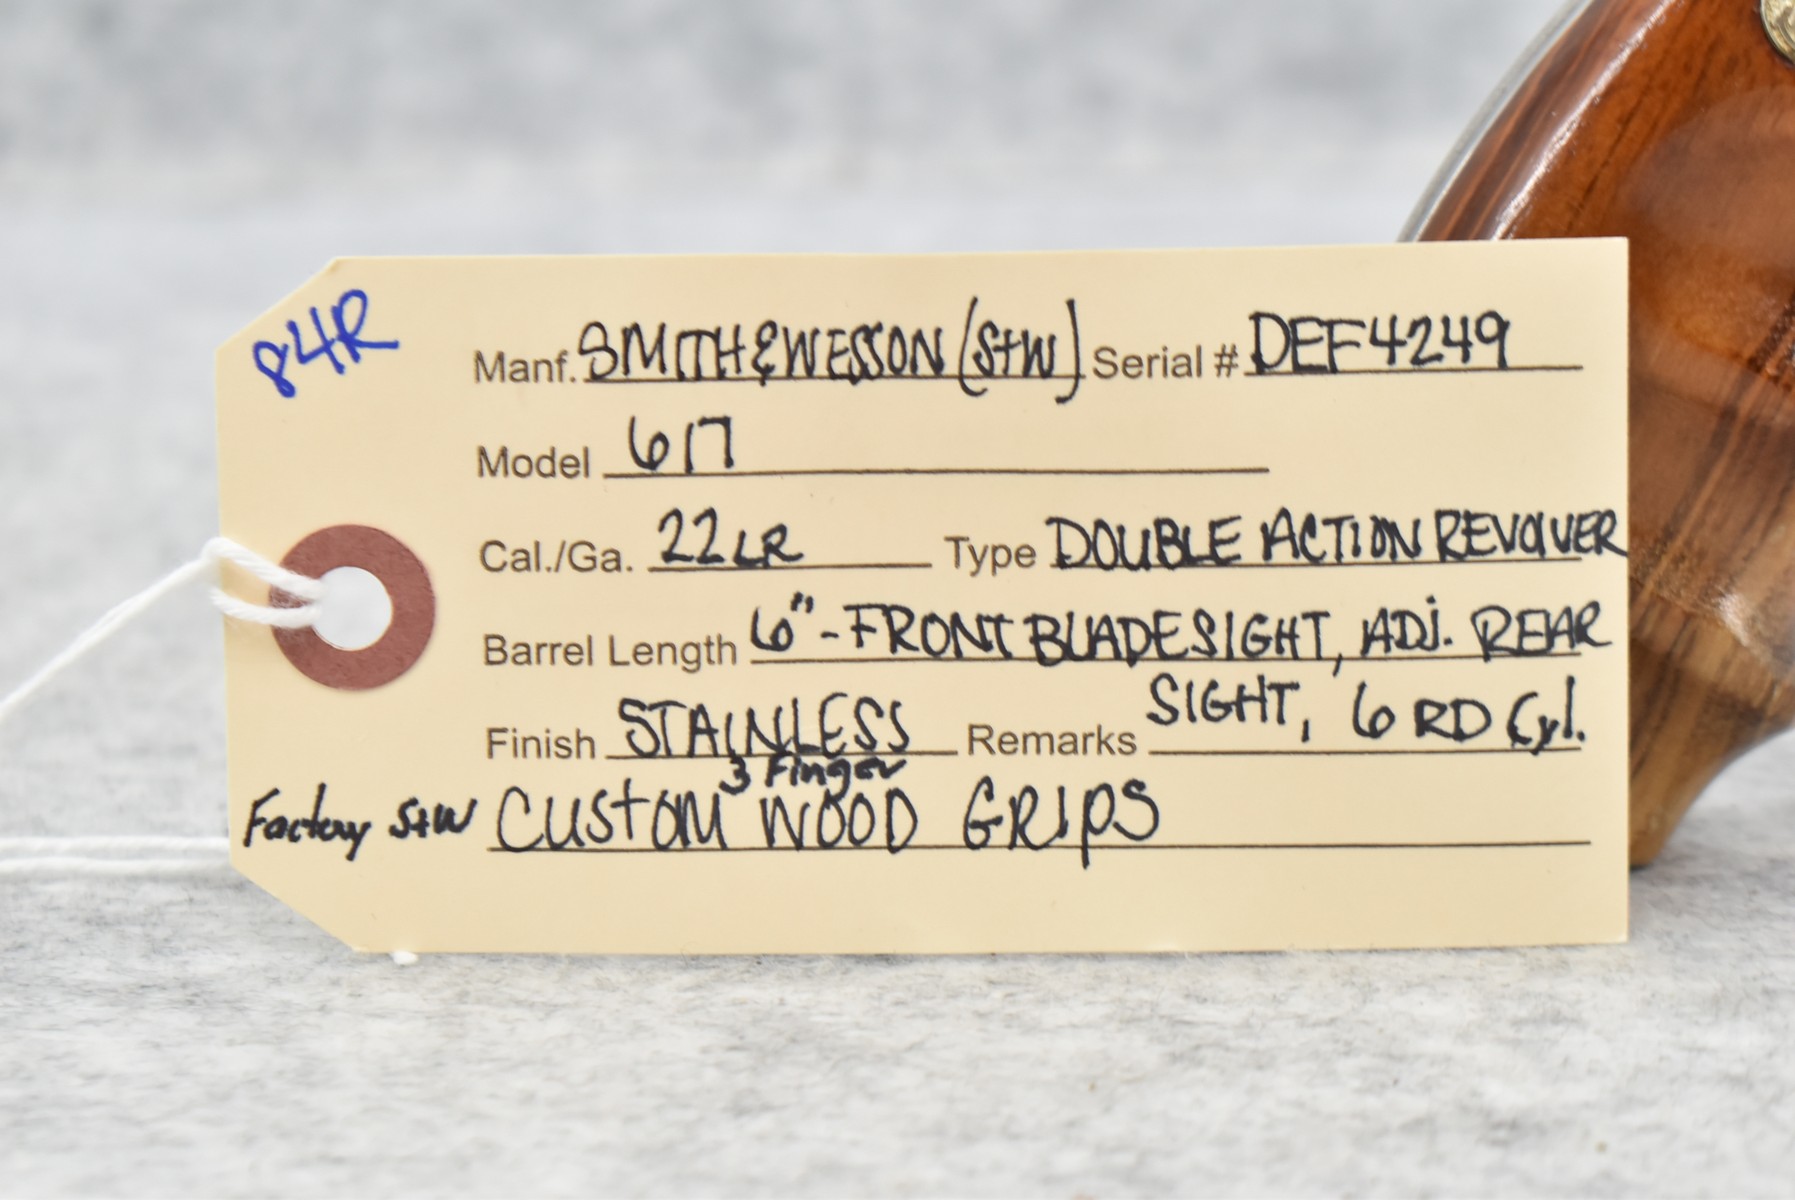 84R
Manf. SMITH & WESSON (S+W) Serial # DEF4249
Model 617
Cal./Ga. 22LR Type DOUBLE ACTION REVOLVER
Barrel Length 6" - FRONT BLADE SIGHT, ADJ. REAR
Finish STAINLESS Remarks SIGHT, 6 RD Cyl.
3 Finger
Factory S+W CUSTOM WOOD GRIPS